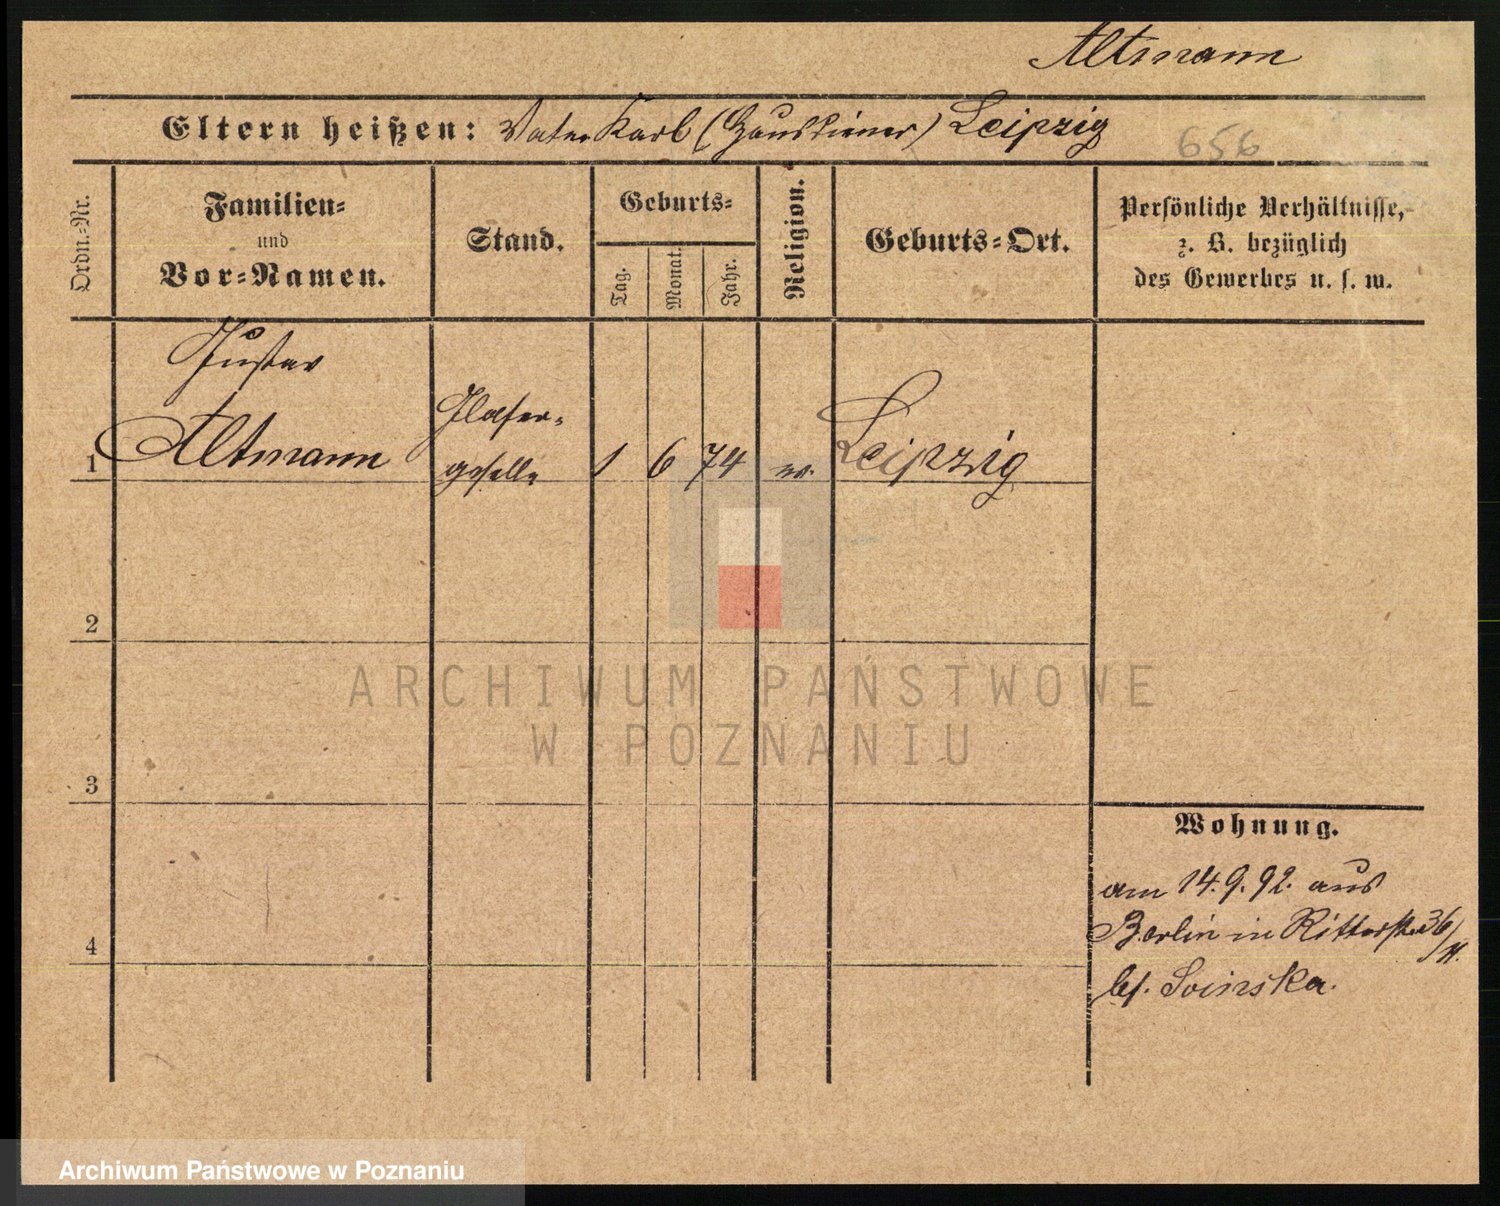 Altmann
Eltern heißen: Vater Karl (Hausdiener) Leipzig
656
Ordn.-Nr.
Familien-
und
Vor-Namen.
Stand.
Geburts-
Tag.
Monat.
Jahr.
Religion.
Geburts-Ort.
Persönliche Verhältnisse,
z. B. bezüglich
des Gewerbes u. s. w.
Gustav
1 Altmann
Glaser-
geselle
1 6 74 ev. Leipzig
2
3
4
Wohnung.
am 14.9.92. aus
Berlin in Ritterstr 36/
II.
bf. Swinska.
ARCHIWUM PAŃSTWOWE
W POZNANIU
Archiwum Państwowe w Poznaniu